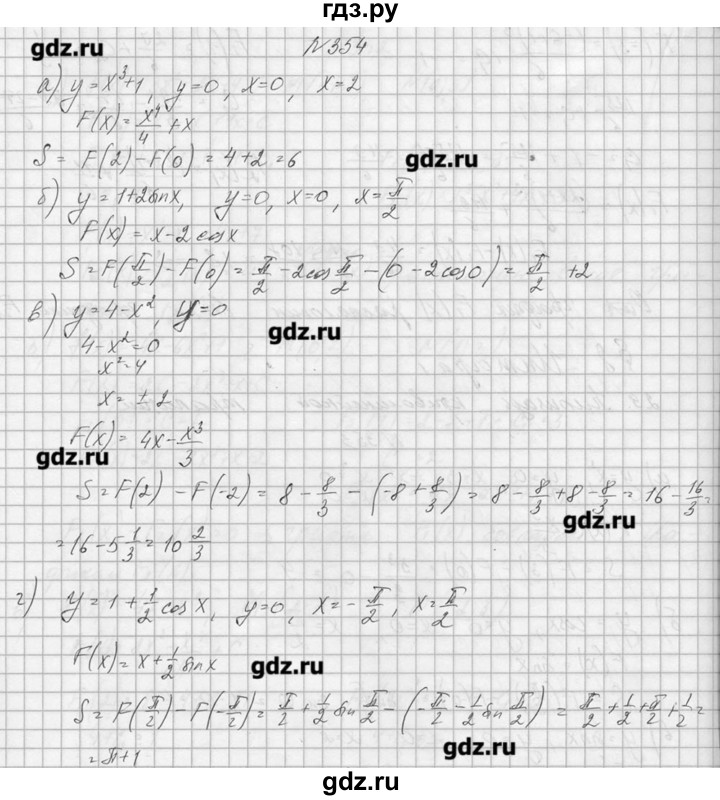 гдз.ру
gdz.ru
N354
а) y = x³+1, y=0, x=0, x=2
F(x) = x⁴/4 + x
S = F(2) - F(0) = 4+2 = 6
gdz.ru
б) y = 1+2sinx, y=0, x=0, x=π/2
F(x) = x-2cosx
S = F(π/2) - F(0) = π/2 - 2cos π/2 - (0 - 2cos0) = π/2 + 2
в) y=4-x², y=0
gdz.ru
4-x²=0
x²=4
x = ± 2
F(x) = 4x - x³/3
gdz.ru
S = F(2) - F(-2) = 8 - 8/3 - (-8 + 8/3) = 8 - 8/3 + 8 - 8/3 = 16 - 16/3 =
gdz.ru
= 16 - 5 1/3 = 10 2/3
г) y = 1 + 1/2 cos x, y=0, x = - π/2, x = π/2
F(x) = x + 1/2 sinx
gdz.ru
S = F(π/2) - F(-π/2) = π/2 + 1/2 sin π/2 - (-π/2 - 1/2 sin π/2) = π/2 + 1/2 + π/2 + 1/2 =
gdz.ru
= π+1
gdz.ru